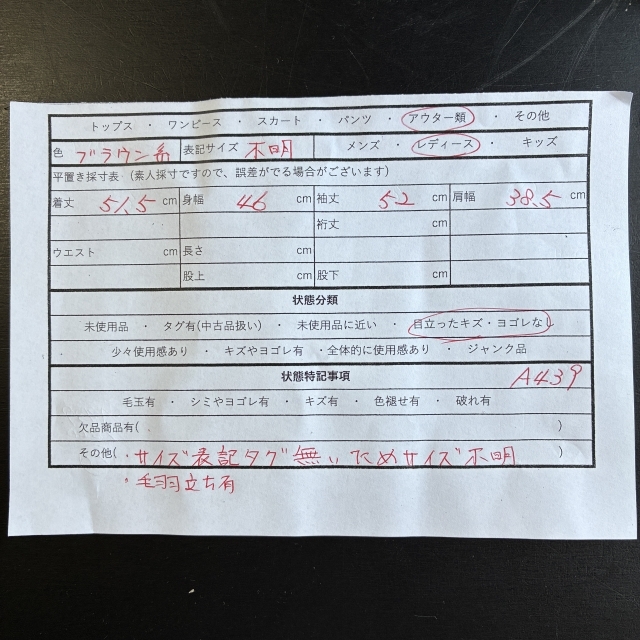 トップス ・ ワンピース ・ スカート ・ パンツ ・ アウター類 ・ その他
色 ブラウン系 表記サイズ 不明 メンズ ・ レディース ・ キッズ
平置き採寸表（素人採寸ですので、誤差がでる場合がございます）
着丈 51.5 cm 身幅 46 cm 袖丈 52 cm 肩幅 38.5 cm
裄丈 cm
ウエスト cm 長さ cm
股上 cm 股下 cm
状態分類
未使用品 ・ タグ有(中古品扱い) ・ 未使用品に近い ・ 目立ったキズ・ヨゴレなし
少々使用感あり ・ キズやヨゴレ有 ・全体的に使用感あり ・ ジャンク品
状態特記事項 A439
毛玉有 ・ シミやヨゴレ有 ・ キズ有 ・ 色褪せ有 ・ 破れ有
欠品商品有( )
その他( ・サイズ表記タグ無いためサイズ不明 )
・毛羽立ち有